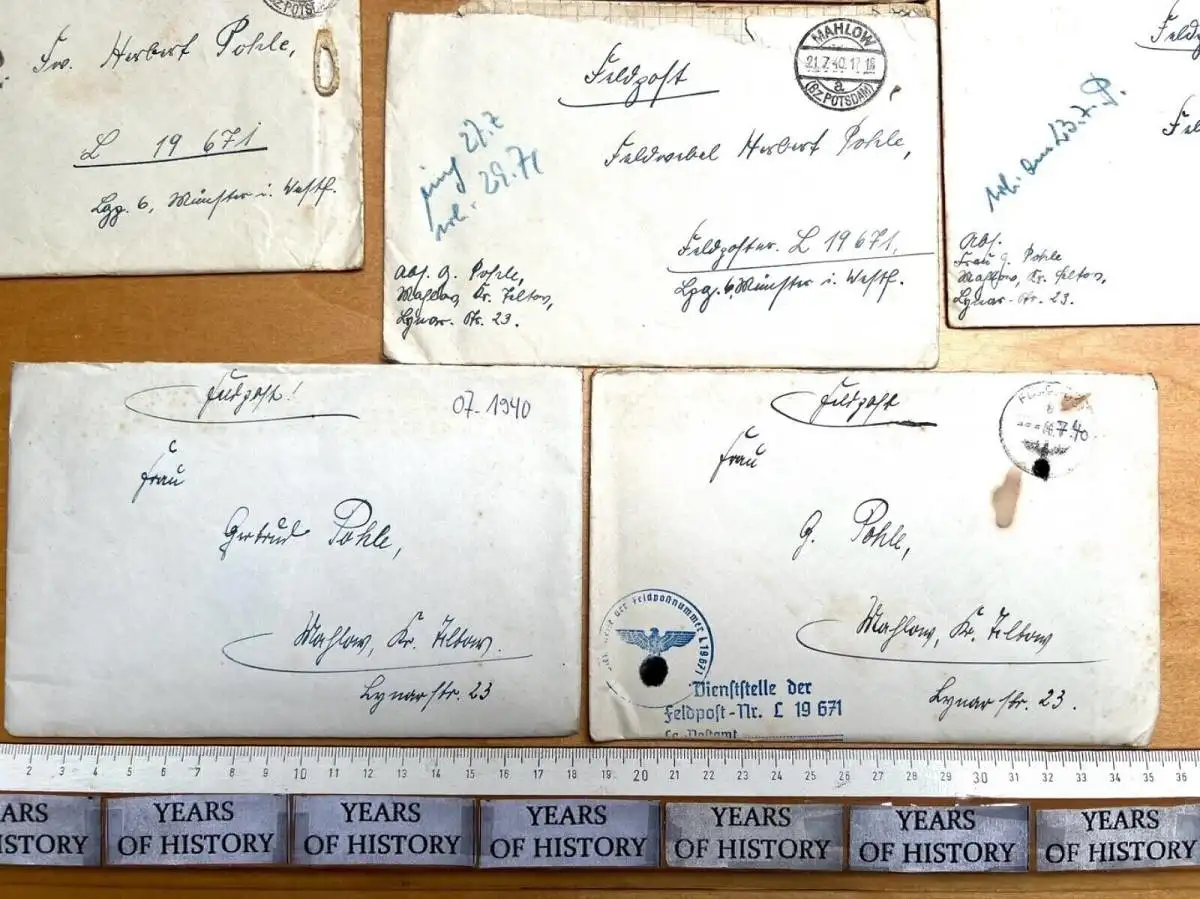 Fw. Herbert Pohle,
L 19 671
Lgp. 6, Münster i. Westf.
Feldpost
MAHLOW
21.7.40. 17
a
(BZ. POTSDAM)
Feldwebel Herbert Pohle,
27.7
29.7.
Feldpostnr. L 19 671.
Lgp. 6, Münster i. Westf.
Abs. G. Pohle,
Mahlow, Kr. Teltow,
Lynar-Str. 23.
am 23.7.
Abs.
Frau G. Pohle
Mahlow, Kr. Teltow,
Lynar-Str. 23.
Feldpost!
07.1940
Frau
Gertrud Pohle,
Mahlow, Kr. Teltow.
Lynarstr. 23
Feldpost
7.40
Frau
G. Pohle,
Mahlow, Kr. Teltow
Lynarstr. 23.
der Feldpostnummer L 19671
Dienststelle der
Feldpost-Nr. L 19 671
2 3 4 5 6 7 8 9 10 11 12 13 14 15 16 17 18 19 20 21 22 23 24 25 26 27 28 29 30 31 32 33 34 35 36
YEARS
OF HISTORY
YEARS
OF HISTORY
YEARS
OF HISTORY
YEARS
OF HISTORY
YEARS
OF HISTORY
YEARS
OF HISTORY